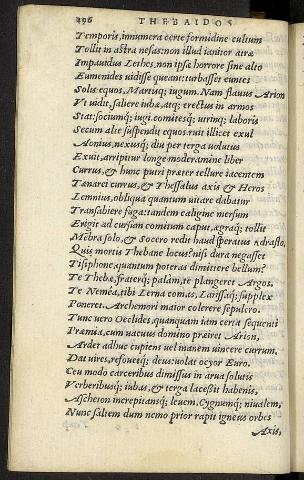 296 THEBAIDOS
Temporis, innumera certe formidine cultum
Tollit in astra nefas: non illud ianitor atræ
Impauidus Lethes, non ipsæ horrore sine alto
Eumenides uidisse queant: turbasset euntes
Solis equos, Martisq; iugum. Nam flauus Arion
Vt uidit, saliere iubæ, atq; erectus in armos
Stat: sociumq; iugi comitesq; utrinq; laboris
Secum alte suspendit equos. ruit illicet exul
Aonius, nexusq; diu per terga uolutus
Exuit, arripitur longe moderamine liber
Currus, & hunc putri præter tellure iacentem
Tænarei currus, & Thessalus axis & Heros
Lemnius, obliqua quantum uitare dabatur
Transabiere fuga: tandem caligine mersum
Erigit ad cursum comitum caput, ægraq; tollit
Mẽbra solo, & Socero redit haud speratus Adrasto,
Quis mortis Thebane locus? nisi dura negasset
Tisiphone, quantum poteras dimittere bellum?
Te Thebæ, fraterq; palàm, te plangeret Argos,
Te Neméa, tibi Lerna comas, Larissaq; supplex
Poneret. Archemori maior colerere sepulcro.
Tunc uero Oeclides, quanquam iam certa sequenti
Præmia, cum uacuus domino præiret Arion,
Ardet adhuc cupiens uel inanem uincere currum.
Dat uires, refouetq; deus: uolat ocyor Euro.
Ceu modo carceribus dimissus in arua solutis
Verberibusq; iubas, & terga lacessit habenis,
Ascheton increpitansq; leuem, Cygnumq; niualem,
Nunc saltem dum nemo prior rapit igneus orbes
Axis,